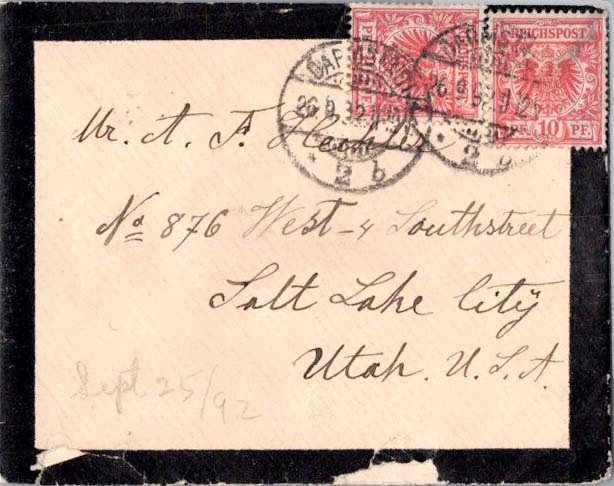 REICHSPOST
10 PF.
26 9 92
2 b
Mr. A. F.
No 876 West-4 Southstreet
Salt Lake City
Utah. U.S.A.
Sept 25/92